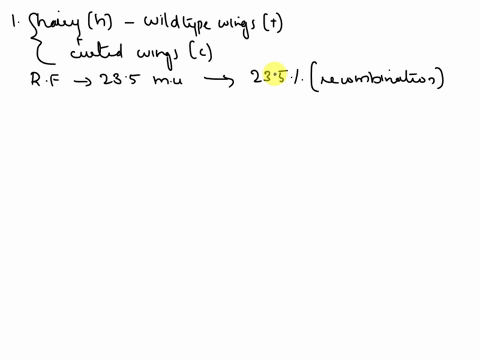 1. hairy (h) - wildtype wings (+)
curled wings (c)
R.F → 23.5 m.u → 23.5 %. (recombination)